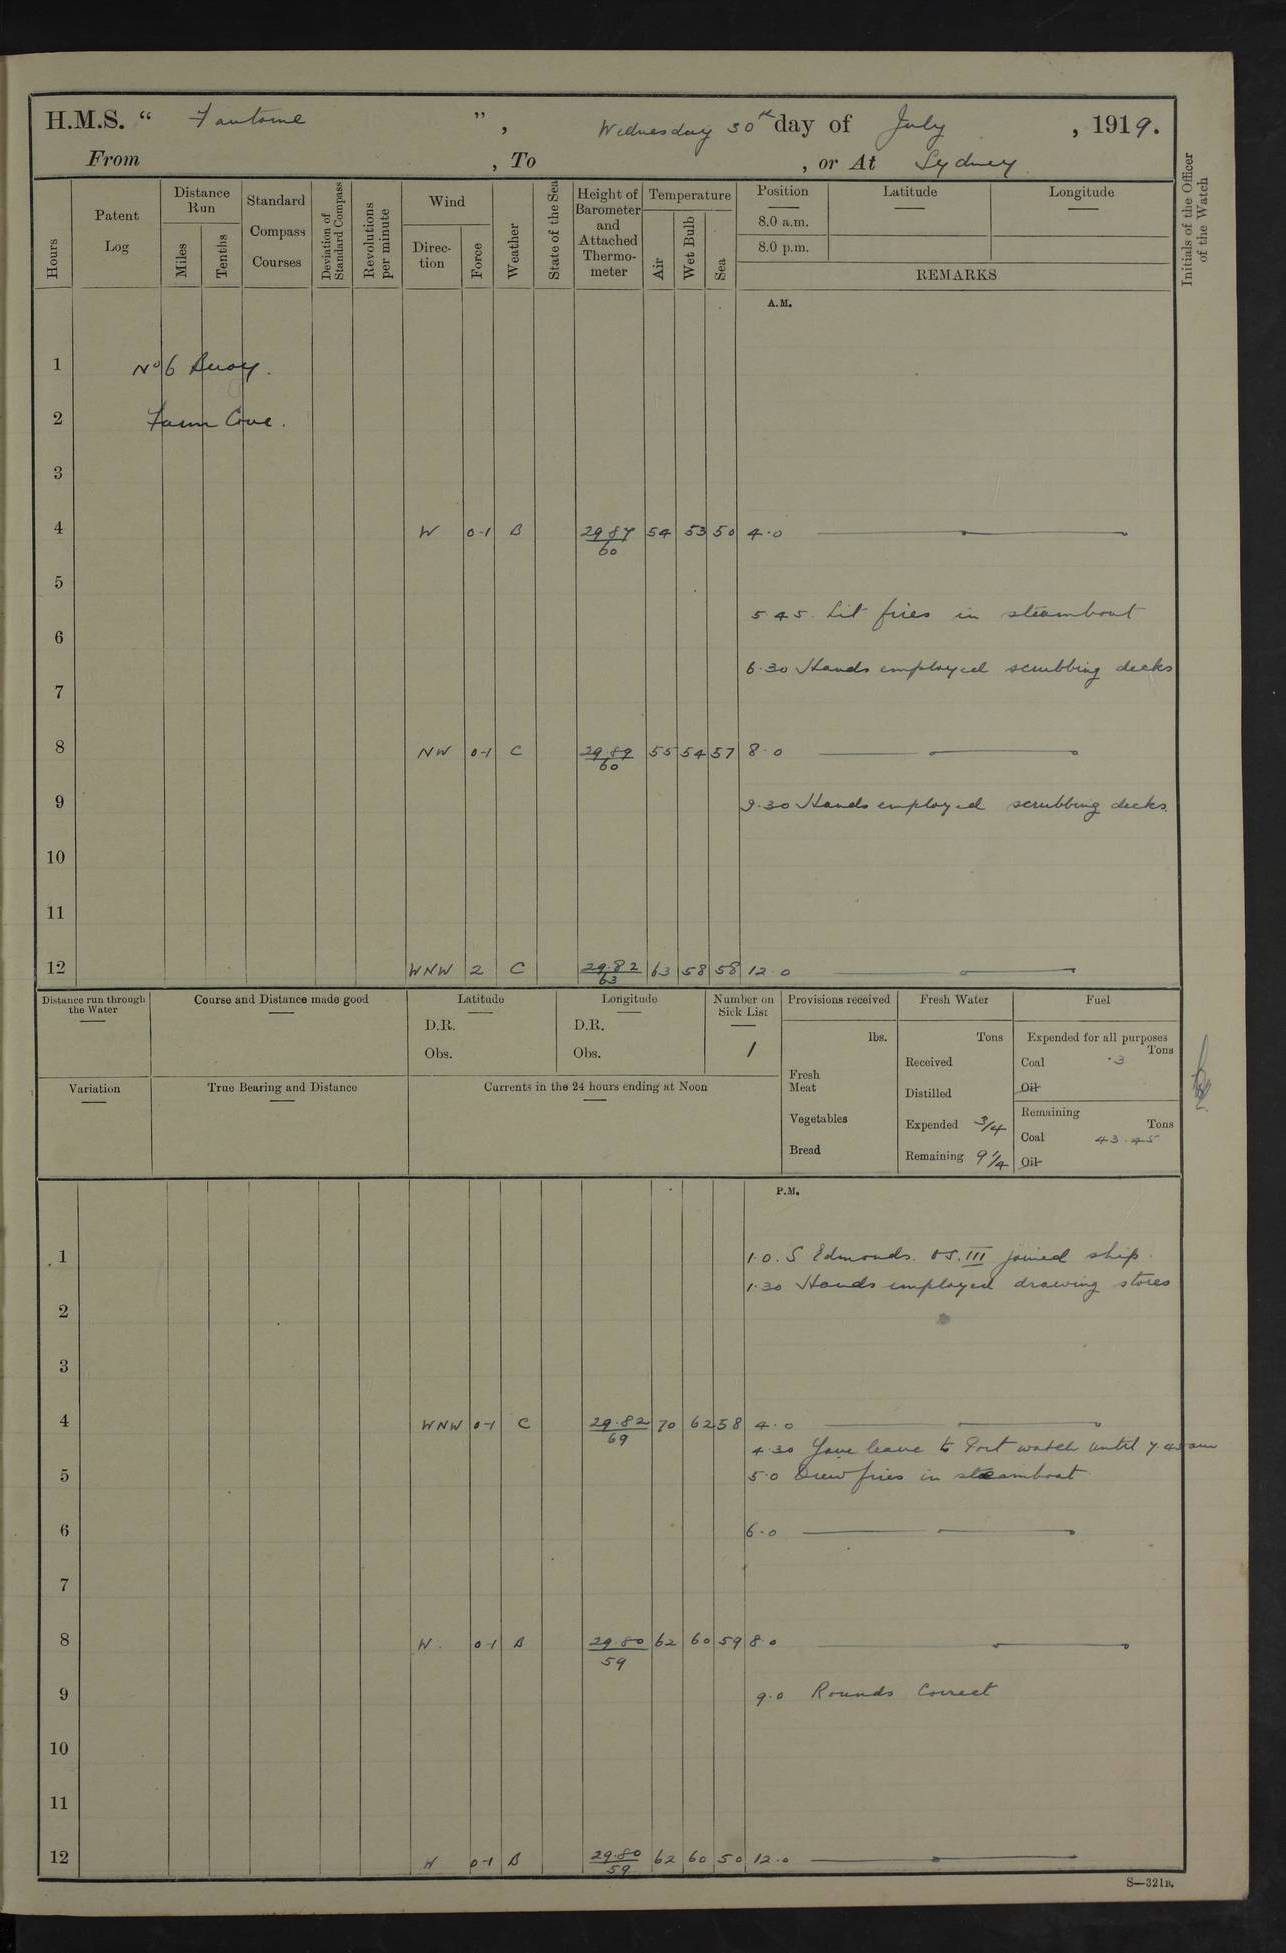 H.M.S. " Fantome ", Wednesday 30th day of July, 1919.
From , To , or At Sydney
Hours
Patent Log
Distance Run
Miles
Tenths
Standard Compass Courses
Deviation of Standard Compass
Revolutions per minute
Wind
Direc-tion
Force
Weather
State of the Sea
Height of Barometer and Attached Thermo-meter
Temperature
Air
Wet Bulb
Sea
Position
8.0 a.m.
8.0 p.m.
Latitude
Longitude
REMARKS
Initials of the Officer of the Watch
A.M.
1 No 6 Buoy.
2 Farm Cove.
3
4 W 0-1 B 29.87/60 54 53 50 4.0
5
5.45. Lit fires in steamboat
6
6.30 Hands employed scrubbing decks
7
8 NW 0-1 C 29.89/60 55 54 57 8.0
9 9.30 Hands employed scrubbing decks.
10
11
12 WNW 2 C 29.82/63 63 58 58 12.0
Distance run through the Water
Course and Distance made good
Latitude
D.R.
Obs.
Longitude
D.R.
Obs.
Number on Sick List
1
Variation
True Bearing and Distance
Currents in the 24 hours ending at Noon
Provisions received
lbs.
Fresh Meat
Vegetables
Bread
Fresh Water
Tons
Received
Distilled
Expended 3/4
Remaining 9 1/4
Fuel
Expended for all purposes
Tons
Coal .3
Oil
Remaining
Tons
Coal 43.45
Oil
P.M.
1 1.0. S Edmonds. OS. III joined ship.
1.30 Hands employed drawing stores
2
3
4 WNW 0-1 C 29.82/69 70 62 58 4.0
4.30 Gave leave to Port watch until 7.45 am
5 5.0 Drew fires in steamboat
6 6.0
7
8 W. 0-1 B 29.80/59 62 60 59 8.0
9 9.0 Rounds Correct
10
11
12 W 0-1 B 29.80/59 62 60 50 12.0
S—321B.